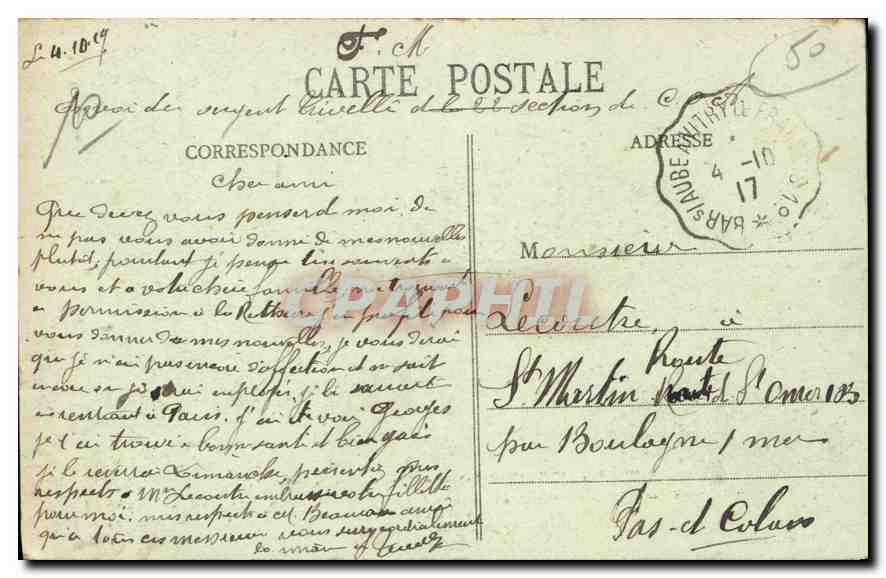 Le 4.10.17
F. M
50
CARTE POSTALE
Envoi du sergent Trivelli de la 22 section de C.O.A
10
BAR S/ AUBE A VITRY LE FRANCOIS
4 -10
17
CORRESPONDANCE
ADRESSE
Cher ami
Que devez vous penser d moi, de
ne pas vous avoir donné de mes nouvelles
plutôt, pourtant je pense très souvent a
vous et a votre chere famille, me trouvant
en permission à la j'en profite pour
vous donner de mes nouvelles, je vous dirai
que je n'ai pas encore d'affectation et ne sait
encore ou je serai employé, je
en rentrant à Paris. j'ai été voir Georges
je l'ai trouvé en bonne santé et bien gai
je le reverrai Dimanche, présentez mes
respects a Mme Lecoutre embrassez votre fillette
pour moi. mes respects a M. Beaucamp ainsi
qu'a tous ces messieurs vous serre cordialement
la main
Monsieur
Lecoutre à
Route
St Martin Route d St Omer 123
par Boulogne s/ mer
Pas-d Calais
CPAPHIL